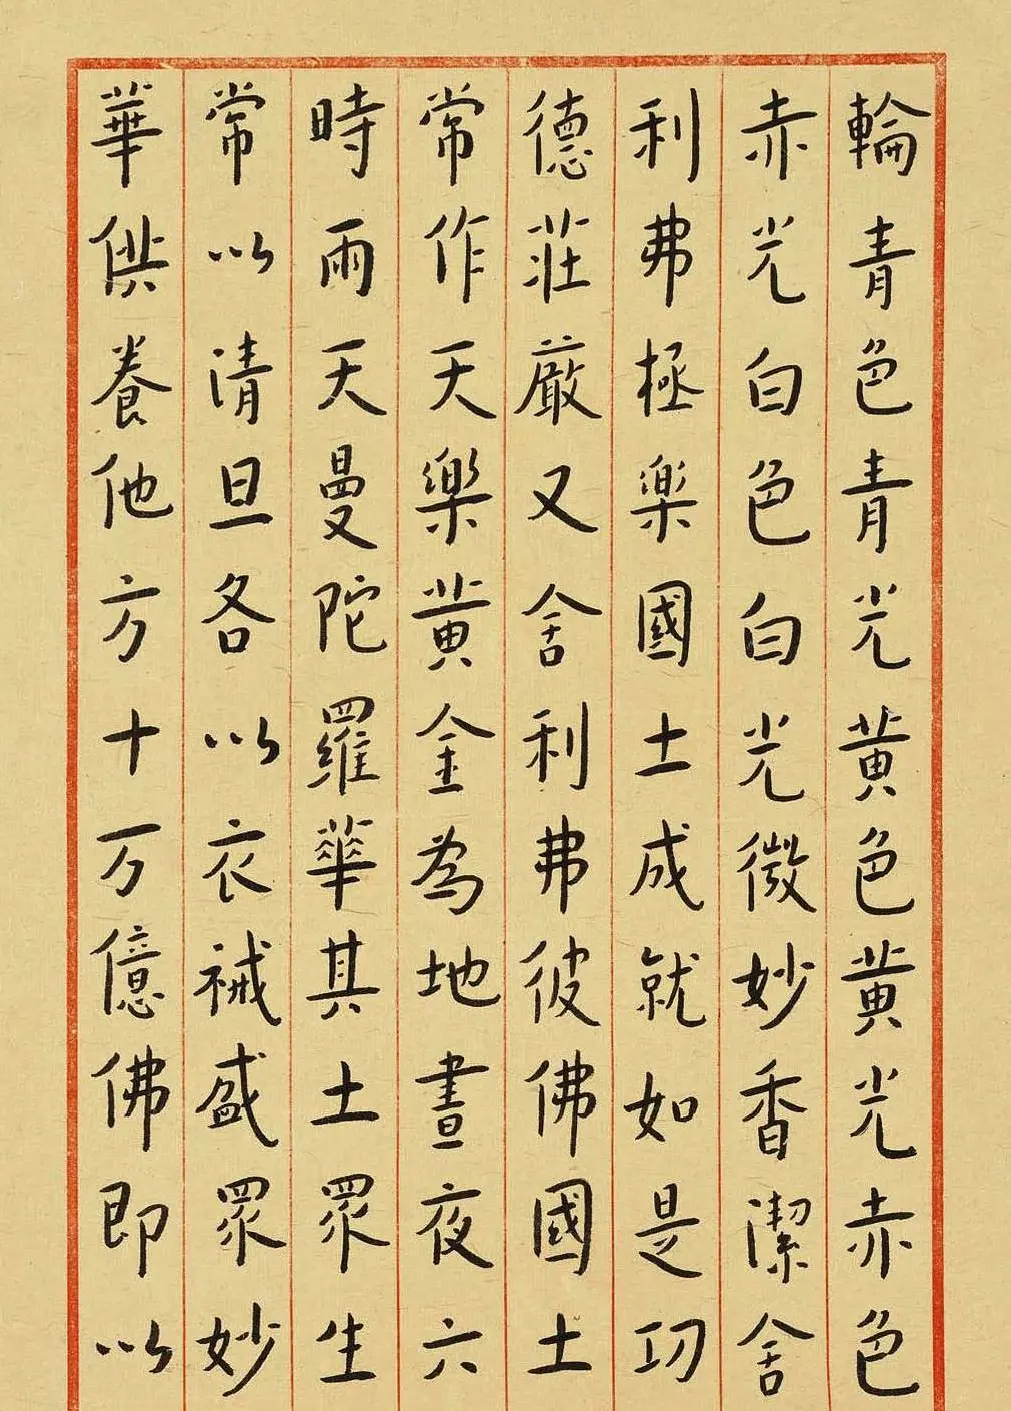 輪青色青光黃色黃光赤色
赤光白色白光微妙香潔舍
利弗極楽國土成就如是功
德莊厳又舍利弗彼佛國土
常作天樂黃金為地晝夜六
時雨天曼陀羅華其土眾生
常以清旦各以衣祴盛眾妙
華供養他方十万億佛即以